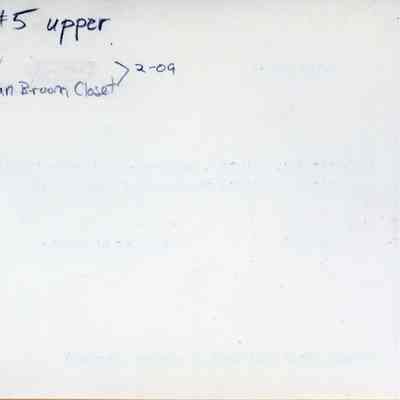 #5 upper
2-09
an Broom Closet